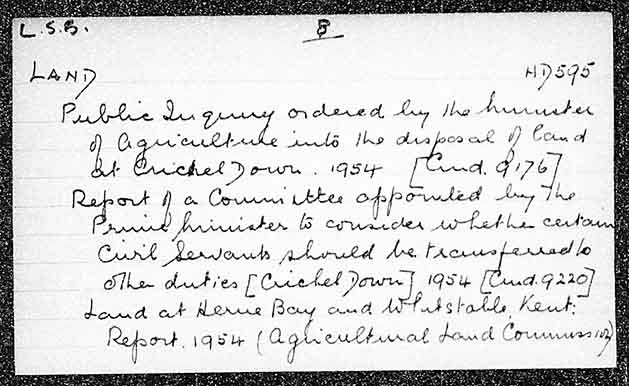 L.S.B. B
LAND HD595
Public Inquiry ordered by the Minister
of Agriculture into the disposal of land
at Crichel Down. 1954 [Cmd. 9176]
Report of a Committee appointed by the
Prime Minister to consider whether certain
Civil Servants should be transferred to
other duties [Crichel Down] 1954 [Cmd. 9220]
Land at Herne Bay and Whitstable, Kent:
Report. 1954 (Agricultural Land Commission)